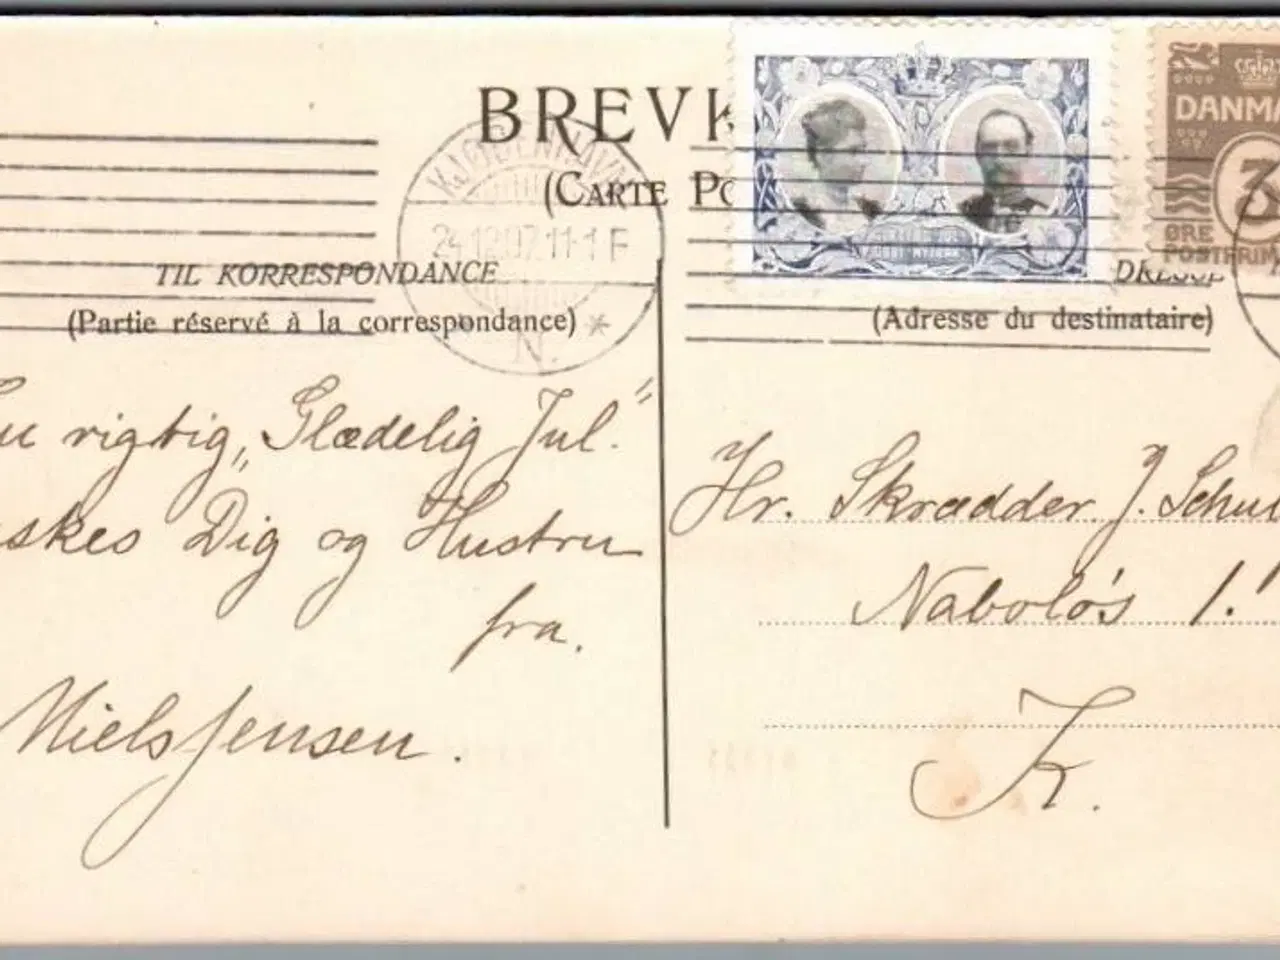 BREVK
(CARTE PO
KJØBENHAVN
24.12.07.11-1 F
N.
*
DANMA
3
ØRE
POSTFRIM
TIL KORRESPONDANCE
(Partie réservé à la correspondance)
(Adresse du destinataire)
rigtig „Glædelig Jul."
Dig og Hustru
fra.
Niels Jensen.
Hr. Skrædder J. Schu
Naboløs 1.'
K.